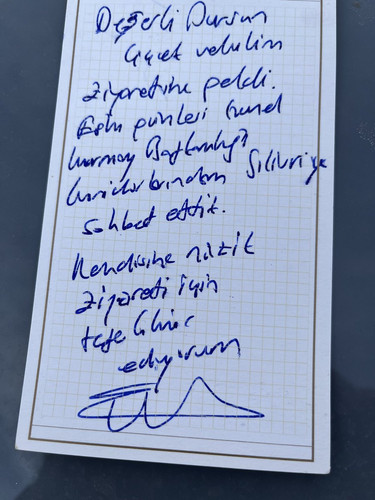 Değerli Dursun
Çiçek vekilim
ziyaretime geldi.
Eski günleri Genel
kurmay Başkanlığı
koridorlarından Silivri'ye
sohbet ettik.
Kendisine nazik
ziyareti için
teşekkür
ediyorum